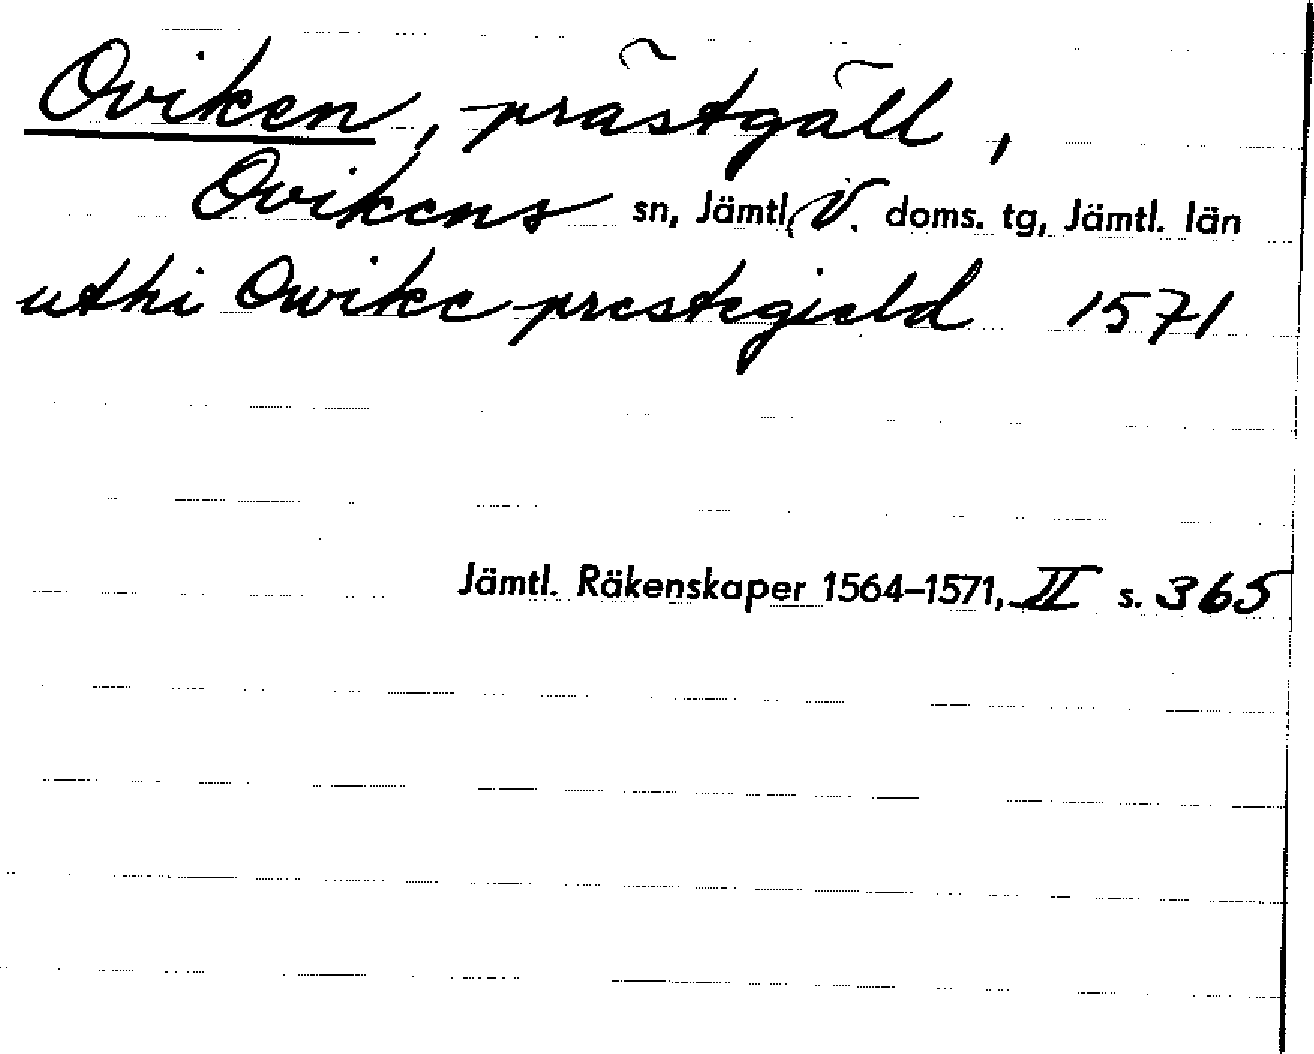 Oviken, prästgäll,
Ovikens sn, Jämtl. V. doms. tg, Jämtl. län
uthi Owike prestegield 1571
Jämtl. Räkenskaper 1564–1571, II s. 365